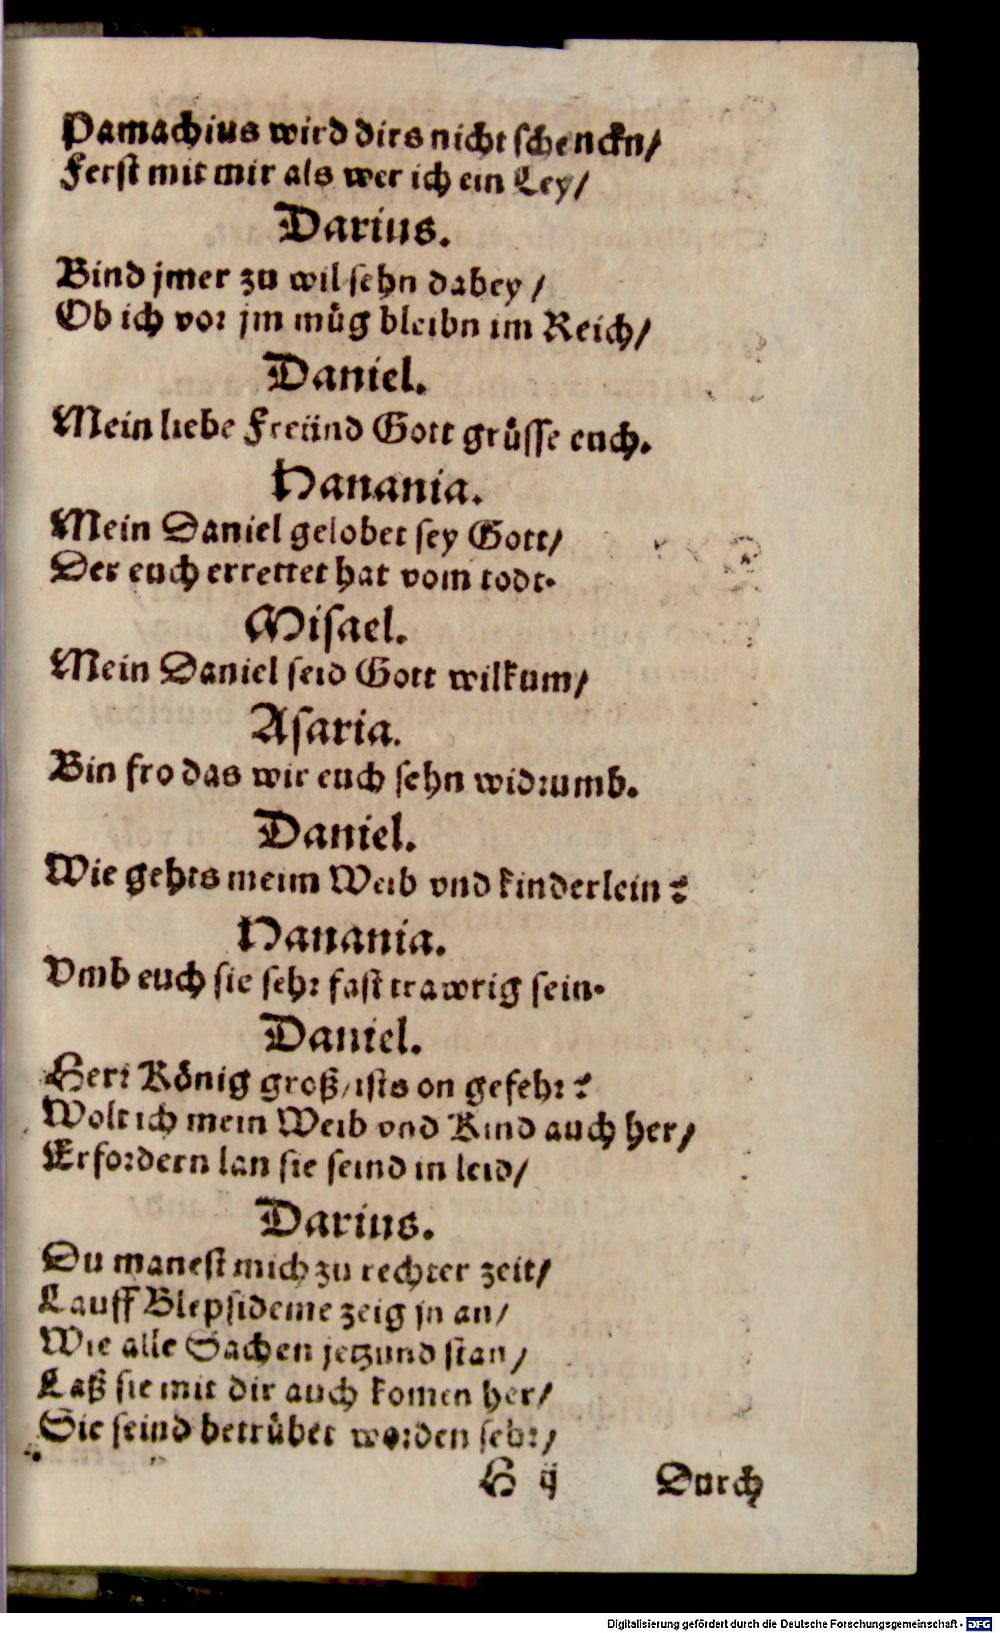 Pamachius wird dirs nicht schenckn/
Ferst mit mir als wer ich ein Ley/
Darius.
Bind jmer zu wil sehn dabey /
Ob ich vor jm müg bleibn im Reich/
Daniel.
Mein liebe Freünd Gott grüsse euch.
Hanania.
Mein Daniel gelobet sey Gott/
Der euch errettet hat vom todt.
Misael.
Mein Daniel seid Gott wilkum/
Asaria.
Bin fro das wir euch sehn widrumb.
Daniel.
Wie gehts meim Weib vnd kinderlein?
Hanania.
Vmb euch sie sehr fast trawrig sein.
Daniel.
Herr König groß/ists on gefehr?
Wolt ich mein Weib vnd Kind auch her/
Erfordern lan sie seind in leid/
Darius.
Du manest mich zu rechter zeit/
Lauff Blepsideme zeig jn an/
Wie alle Sachen jetzund stan/
Laß sie mit dir auch komen her/
Sie seind betrübet worden sehr/
H ij Durch
Digitalisierung gefördert durch die Deutsche Forschungsgemeinschaft - DFG